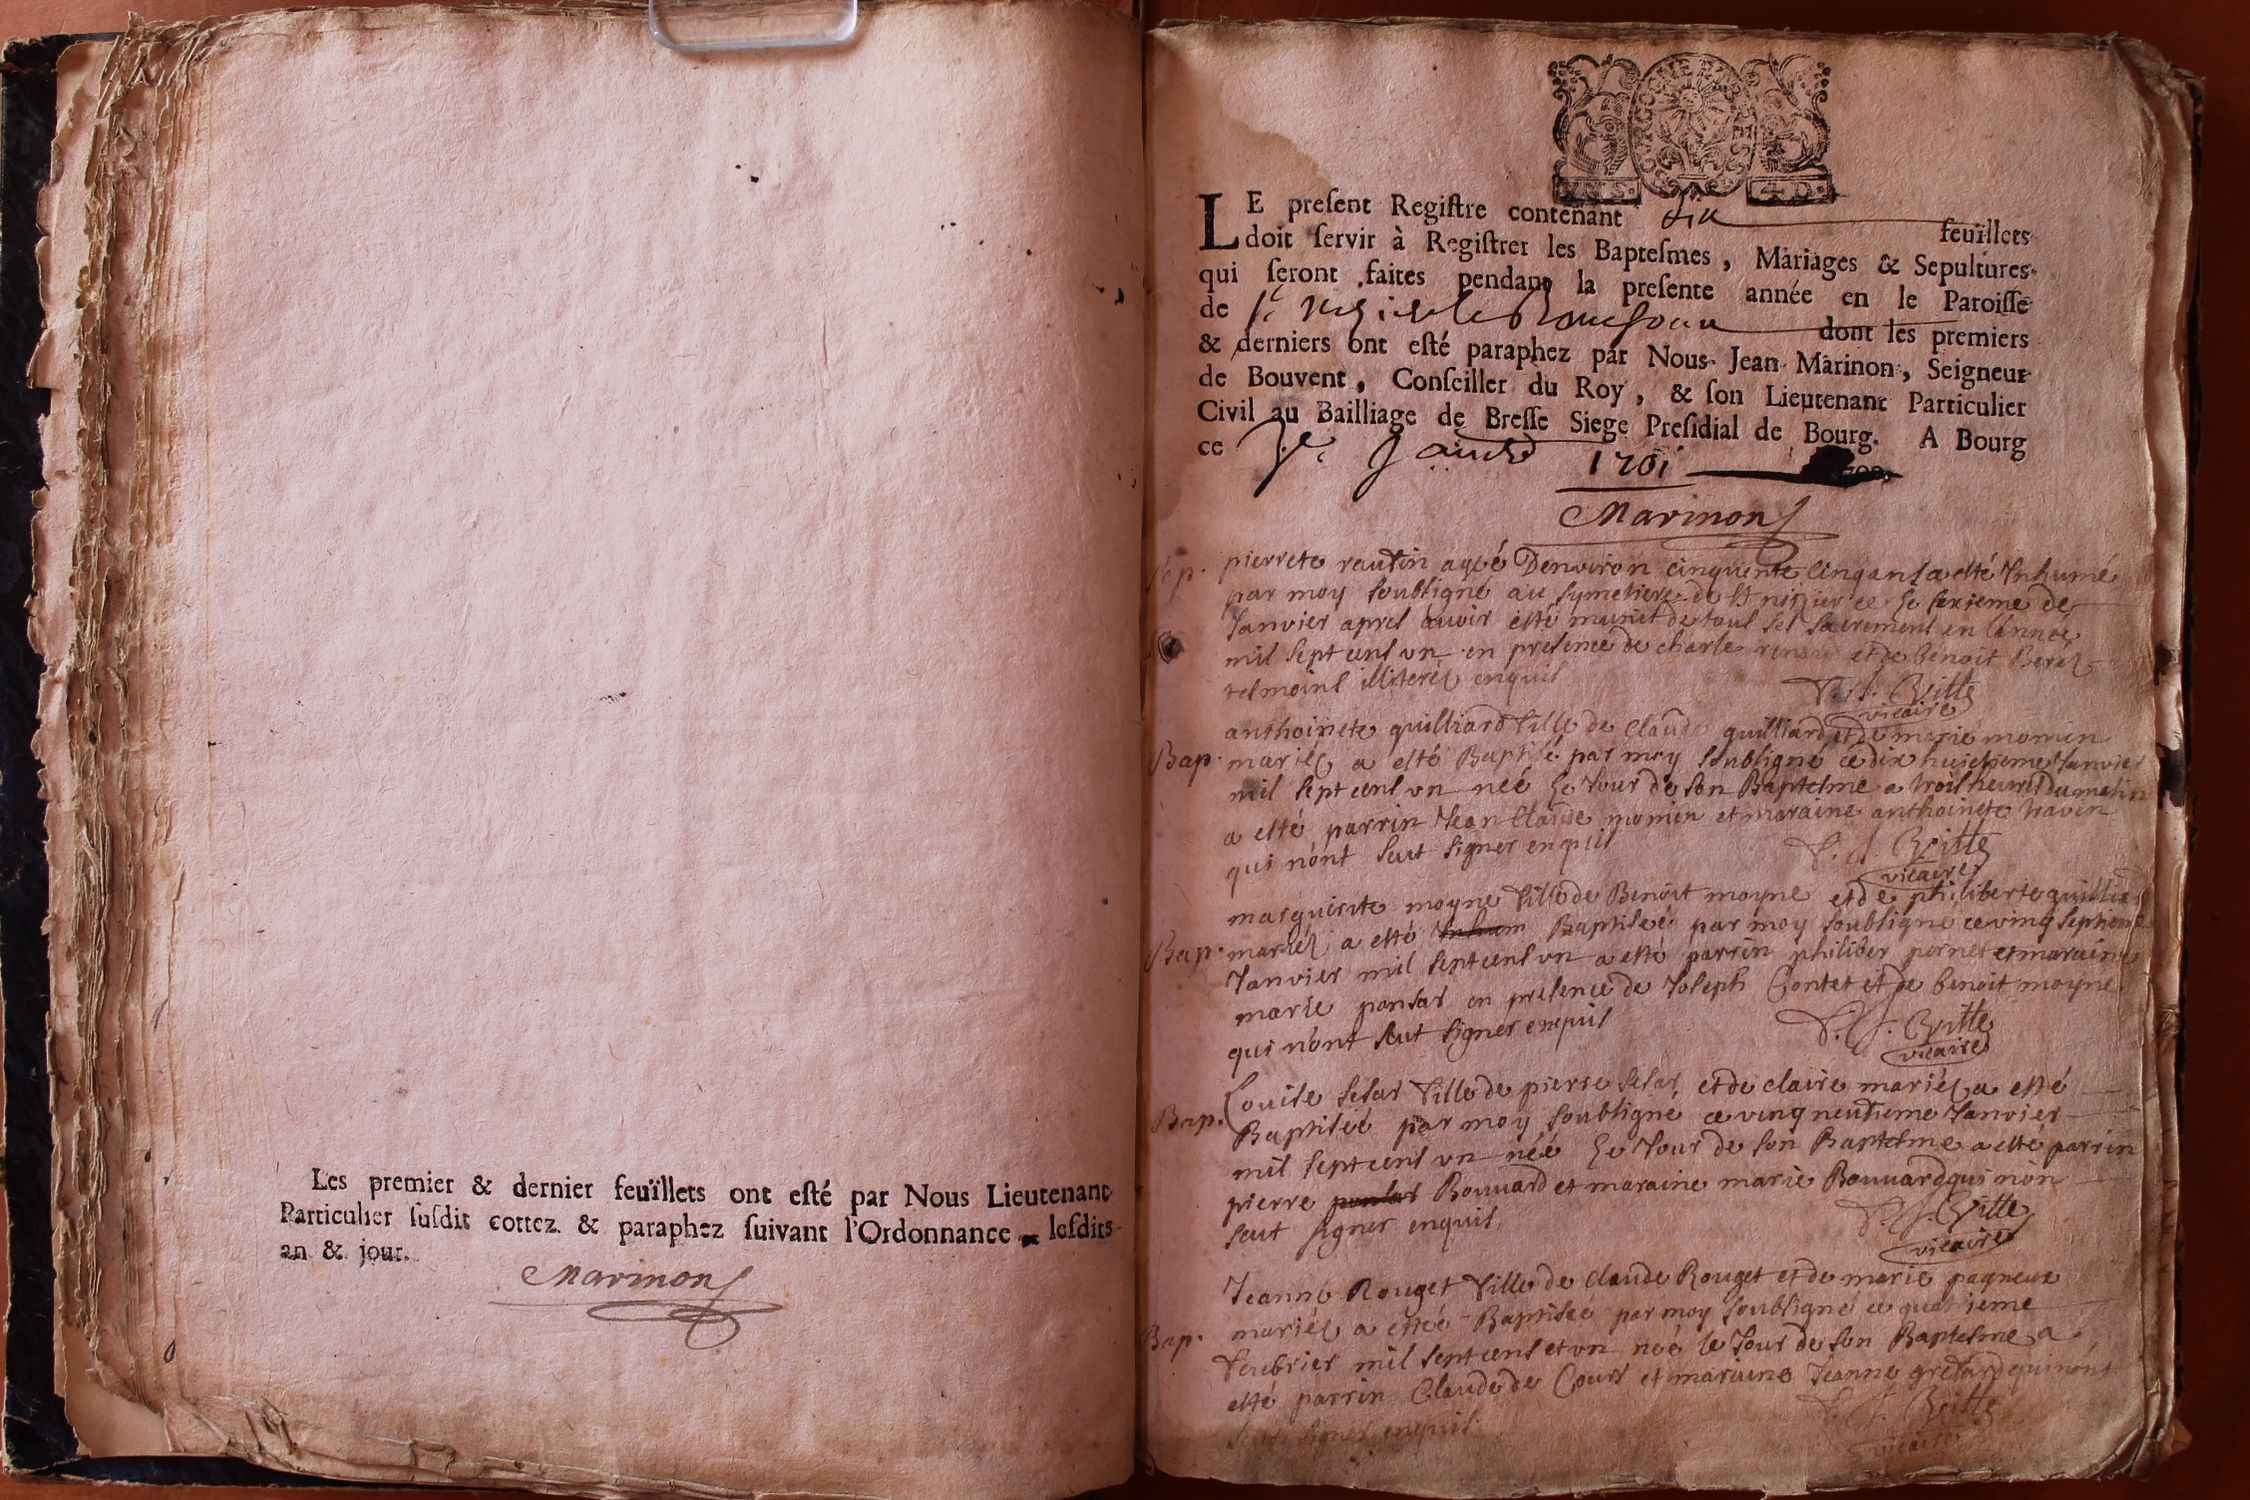 Les premier & dernier feuïllets ont esté par Nous Lieutenant
Particulier susdit cottez & paraphez suivant l'Ordonnance lesdits
an & jour.
Marinon
LE present Registre contenant feuïllets
doit servir à Registrer les Baptesmes, Mariages & Sepultures
qui seront faites pendant la presente année en le Paroisse
de dont les premiers
& derniers ont esté paraphez par Nous Jean Marinon, Seigneur
de Bouvent, Conseiller du Roy, & son Lieutenant Particulier
Civil au Bailliage de Bresse Siege Presidial de Bourg. A Bourg
ce 1701
Marinon
pierrete rautin agéé Denviron cinquente cinq ans a esté Inhumé
par moy soubsigné au symetiere de St nizier ce le sexieme de
Janvier apres avoir esté munit de tous ses sacrement en l'année
mil sept cens un en presence de charle et de benoit
tesmoins illiteres enquis
Britte
vicaire
Bap. anthoinete quilliard fille de Claude quilliard et de marie momin
mariés a esté Baptisé par moy soubsigné ce dix huictieme Janvier
mil sept cens un néé le Jour de son Baptesme a trois heures du matin
a esté parrin Jean Claude momin et maraine anthoinete travin
qui n'ont sceut signer enquis
Britte
vicaire
Bap. marguerite moyne fille de Benoit moyne et de philiberte quilliard
mariés a esté Baptiséé par moy soubsigné ce ving septieme
Janvier mil sept cens un a esté parrin philiber pernet et maraine
marie ponsar en presence de Joseph Contet et de benoit moyne
qui n'ont sceut signer enquis
Britte
vicaire
Bap. Louise sesar fille de pierre sesar et de claire mariés a esté
Baptiséé par moy soubsigné ce ving neufieme Janvier
mil sept cens un néé le Jour de son Baptesme a esté parrin
pierre Bouvard et maraine marie Bouvard qui n'on
sceut signer enquis
Britte
vicaire
Bap. Jeanne Rouget fille de claude Rouget et de marie pagneux
mariés a estéé Baptisée par moy soubsigné ce quatrieme
feubrier mil sept cens et un néé le Jour de son Baptesme a
esté parrin Claude de Cours et maraine Jeanne qui n'ont
signer enquis
Britte
vicaire